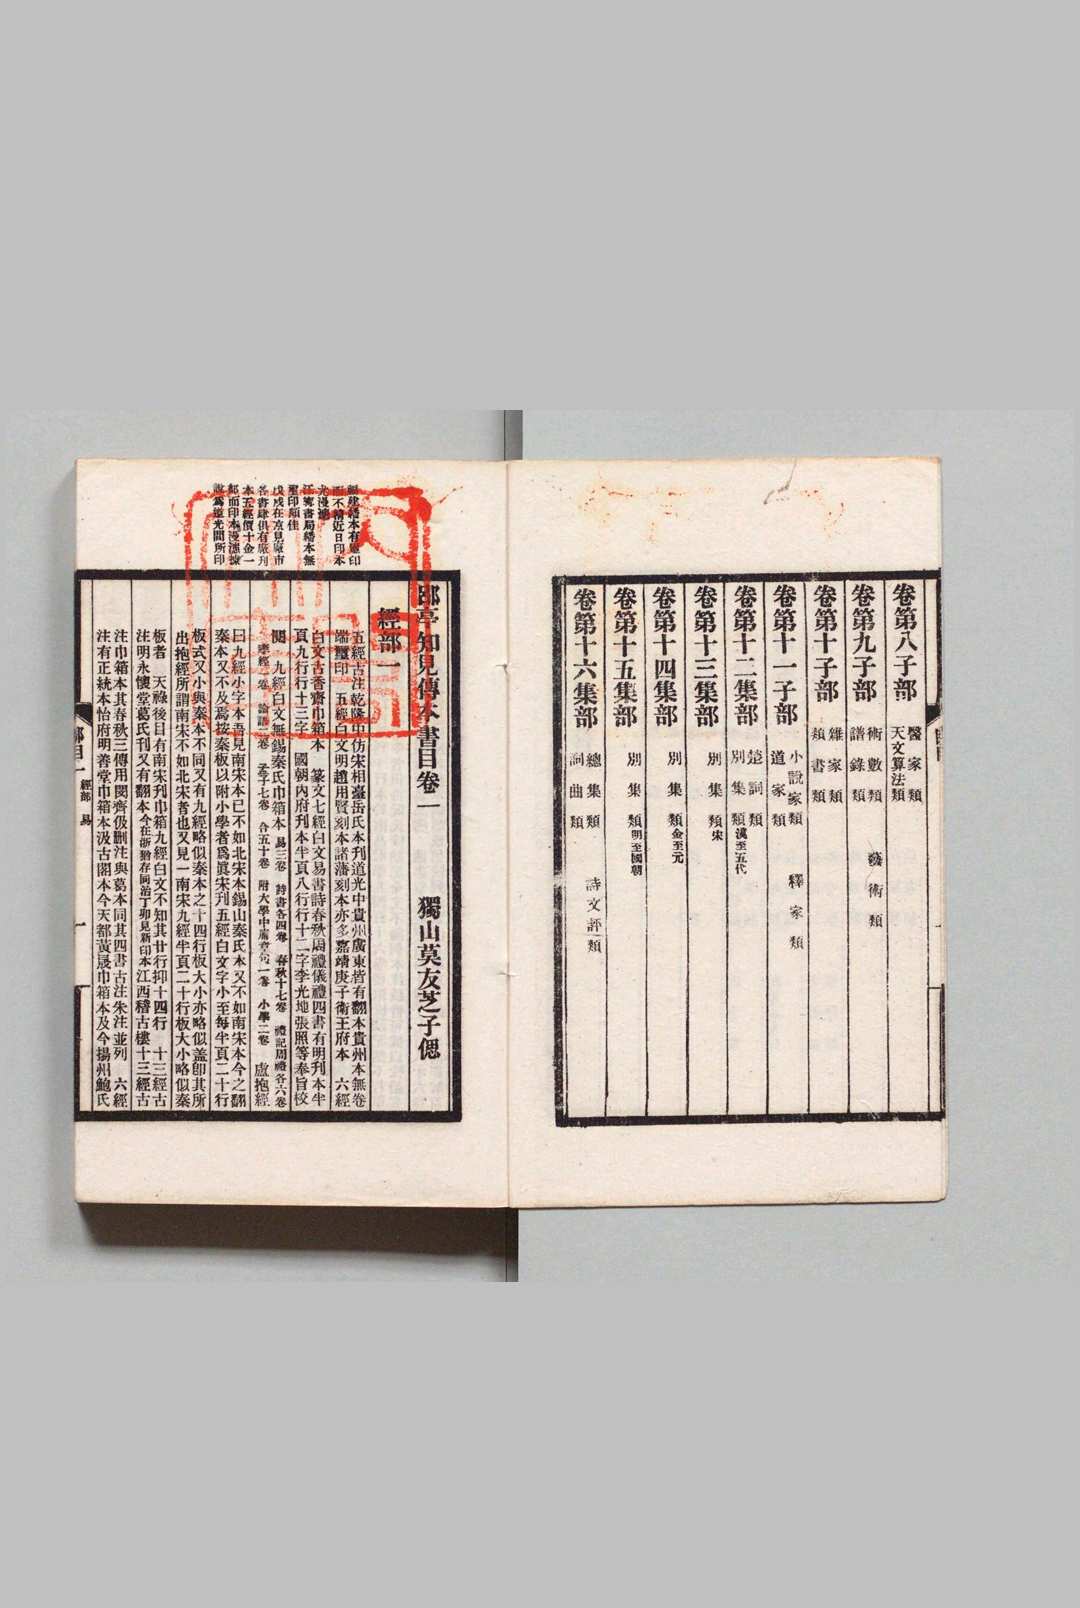 卷第八子部 醫家類 天文算法類
卷第九子部 術數類 藝術類 譜錄類
卷第十子部 雜家類 類書類
卷第十一子部 小說家類 釋家類 道家類
卷第十二集部 楚詞類 別集類漢至五代
卷第十三集部 別集類宋
卷第十四集部 別集類金至元
卷第十五集部 別集類明至國朝
卷第十六集部 總集類 詩文評類 詞曲類
福建繙本有廠印
而不精近日印本
尤漫漶
江寧書局繙本無
璽印頗佳
戊戌在京見廠市
各書肆俱有廠刊
本五經價十金一
部而印本漫漶據
說為道光間所印
郘亭知見傳本書目卷一 獨山莫友芝子偲
經部一
五經古注乾隆中仿宋相臺岳氏本刊道光中貴州廣東皆有翻本貴州本無卷
端璽印 五經白文明趙用賢刻本諸藩刻本亦多嘉靖庚子衛王府本 六經
白文古香齋巾箱本 篆文七經白文易書詩春秋周禮儀禮四書有明刊本半
頁九行行十三字 國朝內府刊本半頁八行行十二字李光地張照等奉旨校
閱 九經白文無錫秦氏巾箱本 易三卷 詩書各四卷 春秋十七卷 禮記周禮各六卷
孝經一卷 論語二卷 孟子七卷 合五十卷 附大學中庸章句一卷 小學二卷 盧抱經
曰九經小字本吾見南宋本已不如北宋本錫山秦氏本又不如南宋本今之翻
秦本又不及焉按秦板以附小學者為眞宋刊五經白文字小至每半頁二十行
板式又小與秦本不同又有九經略似秦本之十四行板大小亦略似盖卽其所
出抱經所謂南宋不如北宋者也又見一南宋九經半頁二十行板大小略似秦
板者 天祿後目有南宋刋巾箱九經白文不知其廿行抑十四行 十三經古
注明永懷堂葛氏刊又有翻本今在浙猶存同治丁卯見新印本江西稽古樓十三經古
注巾箱本其春秋三傳用閔齊伋删注與葛本同其四書古注朱注並列 六經
注有正統本怡府明善堂巾箱本汲古閣本今天都黃晟巾箱本及今揚州鮑氏
郘目一 經部 易 一